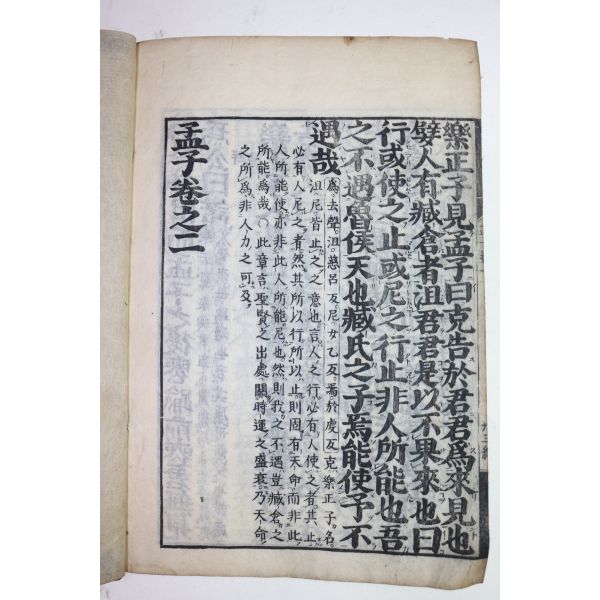 樂正子見孟子曰克告於君君爲來見也
嬖人有臧倉者沮君君是以不果來也曰
行或使之止或尼之行止非人所能也吾
之不遇魯侯天也臧氏之子焉能使予不
遇哉
爲去聲沮慈呂反尼女乙反焉於虔反克樂正子名
沮尼皆止之之意也言人之行必有人使之者其止
必有人尼之者然其所以行所以止則固有天命而非此
人所能使亦非此人所能尼也然則我之不遇豈臧倉之
所能爲哉○此章言聖賢之出處關時運之盛衰乃天命
之所爲非人力之可及
孟子卷之二